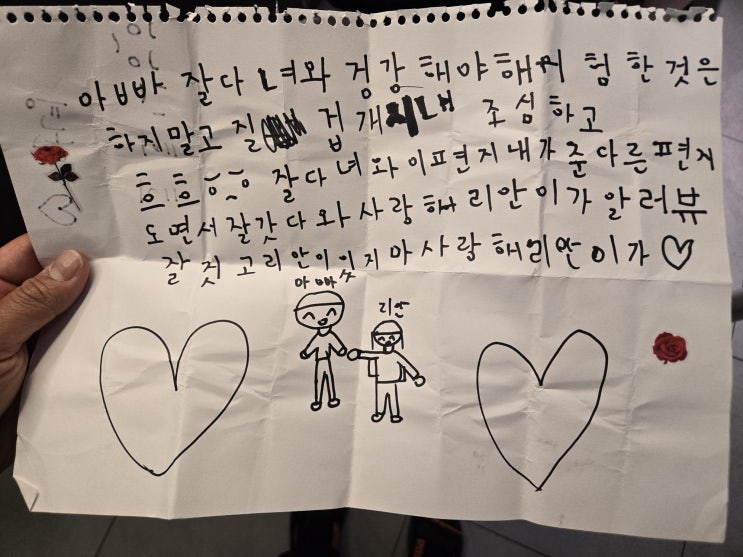 아빠 잘다녀와 겅강해야해 험한것은
하지말고 질 겁개 지내 조심하고
흐흐 잘다녀와 이편지 내가 준 다른 편지
도 면서 잘갓다와 사랑해 리안이가 알러뷰
잘 짓고 리안이 잇지마 사랑해 리안이가
아빠
리안